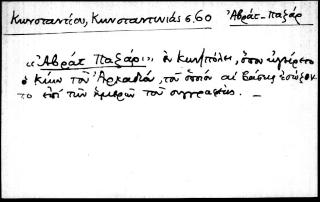 Κωνσταντίου, Κωνσταντινιάς σ. 60 Ἀβράτ-Παζάρ
«Ἀβράτ Παζάρ» ἐν Κων/πόλει, ὅπου ὑψοῦτο
ὁ κίων τοῦ Ἀρκαδίου, τοῦ ὁποίου αἱ βάσεις ἐσώζον
το ἐπί τῶν ἡμερῶν τοῦ συγγραφέως. —